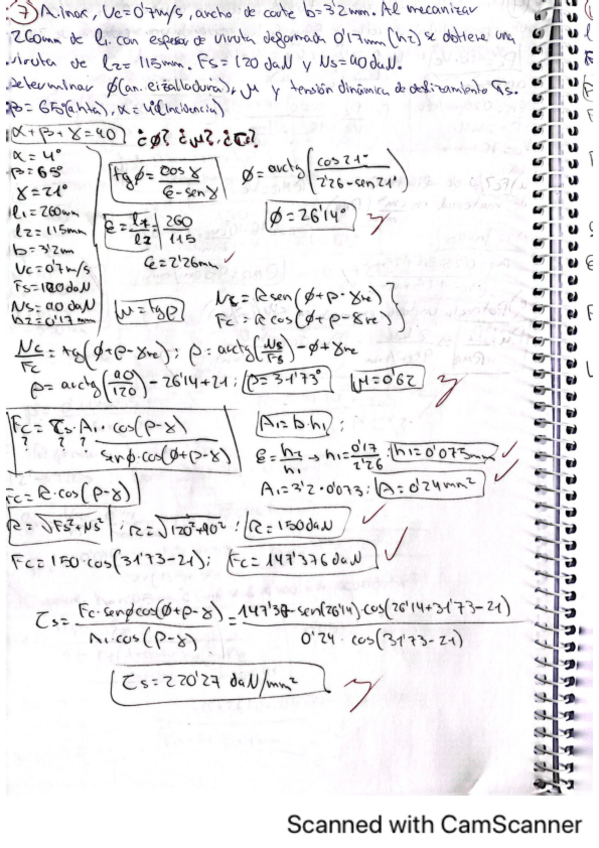 7) A. inox, Vc=0'7m/s, ancho de corte b=3'2mm. Al mecanizar
260mm de l1 con espesor de viruta deformada 0'17mm (h2) se obtiene una
viruta de l2=115mm. Fs=120daN y Ns=90daN.
Determinar φ(an. cizalladura), μ y tensión dinámica de deslizamiento τs.
β=65º(ahta), α=4º(incidencia)
α+β+γ=90 ¿φ? ¿μ? ¿τs?
α=4º
β=65º
γ=21º
l1=260mm
l2=115mm
b=3'2m
Vc=0'7m/s
Fs=120daN
Ns=90daN
h2=0'17mm
tgφ = cosγ / ε-senγ
φ=arctg(cos21º / 2'26-sen21º)
φ=26'14º
ε = l1/l2 = 260/115
ε=2'26mm
μ=tgρ
Ns=R sen(φ+ρ-γne)
Fc=R cos(φ+ρ-γne)
Nc/Fc = tg(φ+ρ-γne); ρ=arctg(Ns/Fs)-φ+γne
ρ=arctg(90/120)-26'14+21; ρ=31'73º μ=0'62
Fc = τs·A1·cos(ρ-γ) / senφ·cos(φ+ρ-γ)
? ? ?
A1=b·h1;
ε=h2/h1 → h1=0'17/2'26; h1=0'075mm
A1=3'2·0'073; A=0'24mm²
Fc=R·cos(ρ-γ)
R=√Fs²+Ns²; R=√120²+90²; R=150daN
Fc=150·cos(31'73-21); Fc=147'376daN
τs = Fc·senφcos(φ+ρ-γ) / A1·cos(ρ-γ) = 147'38·sen(26'14)·cos(26'14+31'73-21) / 0'24·cos(31'73-21)
τs=220'27 daN/mm²
Scanned with CamScanner